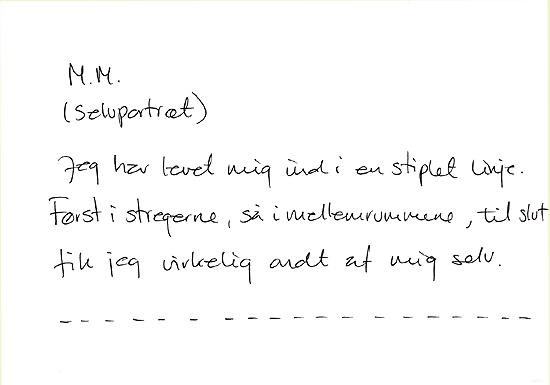 M.M.
(Selvportræt)
Jeg har levet mig ind i en stiplet linje.
Først i stregerne, så i mellemrummene, til slut
fik jeg virkelig ondt af mig selv.